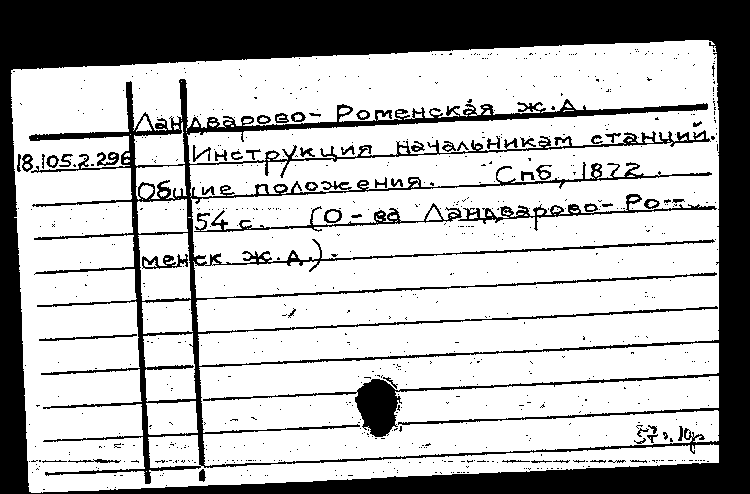 Ландварово-Роменская ж.д.
18.105.2.296 Инструкция начальникам станций.
Общие положения. Спб, 1872.
54 с. (О-ва Ландварово-Ро-
менск. ж.д.).
57 г.